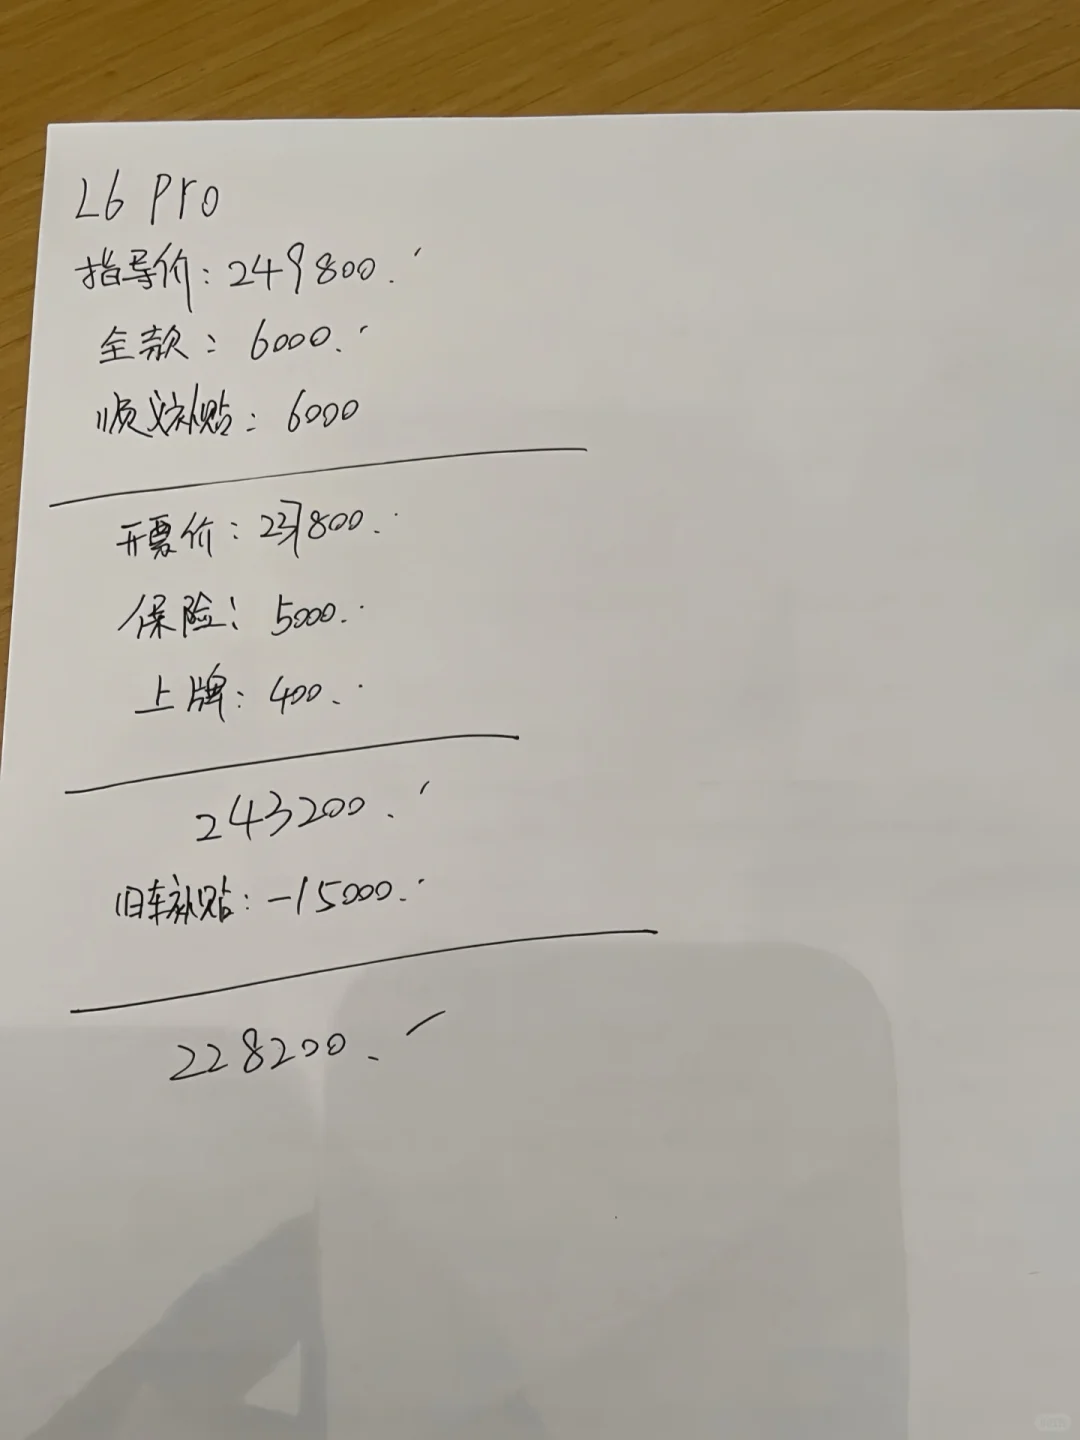 L6 Pro
指导价：249800.
全款：6000.
顺义补贴：6000
开票价：237800.
保险：5000.
上牌：400.
243200.
旧车补贴：-15000.
228200.